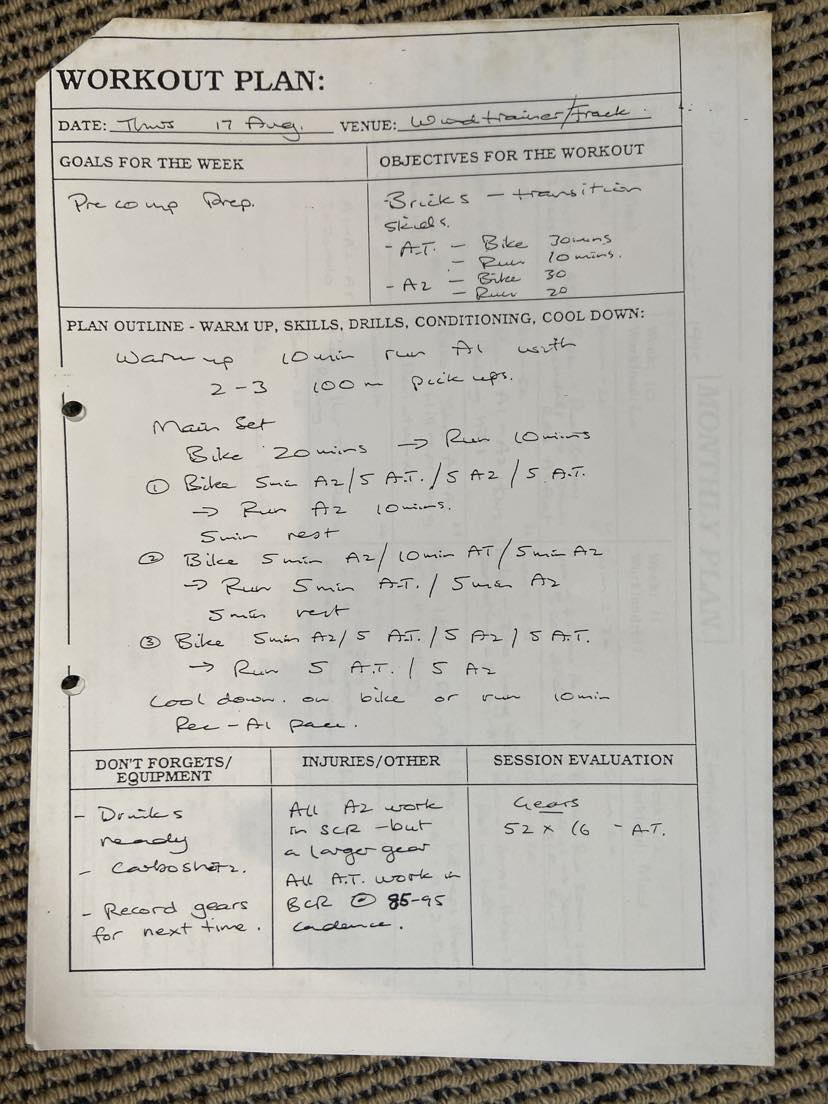 WORKOUT PLAN:
DATE: Thurs 17 Aug. VENUE: Windtrainer/Track
GOALS FOR THE WEEK
Pre comp Prep.
OBJECTIVES FOR THE WORKOUT
Bricks - transition
skills.
- A.T. - Bike 30mins
- Run 10mins.
- A2 - Bike 30
- Run 20
PLAN OUTLINE - WARM UP, SKILLS, DRILLS, CONDITIONING, COOL DOWN:
Warm up 10min run A1 with
2-3 100m pick ups.
Main Set
Bike 20mins → Run 10mins
① Bike 5min A2/5 A.T./5 A2/5 A.T.
→ Run A2 10mins.
5min rest
② Bike 5min A2/10min AT/5min A2
→ Run 5min A.T./5min A2
5min rest
③ Bike 5min A2/5 A.T./5 A2/5 A.T.
→ Run 5 A.T./5 A2
Cool down. on bike or run 10min
Rec-A1 pace.
DON'T FORGETS/
EQUIPMENT
- Drinks
ready
- Carboshotz.
- Record gears
for next time.
INJURIES/OTHER
All A2 work
in SCR - but
a larger gear
All A.T. work in
BCR @ 85-95
cadence.
SESSION EVALUATION
Gears
52 x 16 - A.T.
MONTHLY PLAN